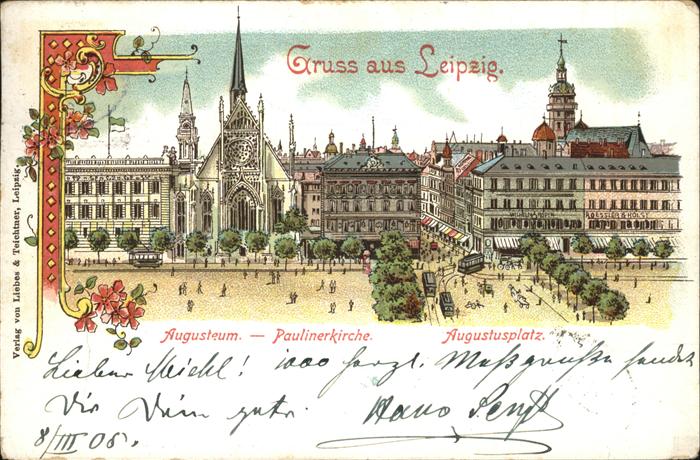 Gruss aus Leipzig.
Verlag von Liebes & Teichtner, Leipzig.
Augusteum. — Paulinerkirche. Augustusplatz.
Lieber Michl! 1000 herzl. Meßgrüße sendet
Dir Dein getr. Hans
8/III 05.